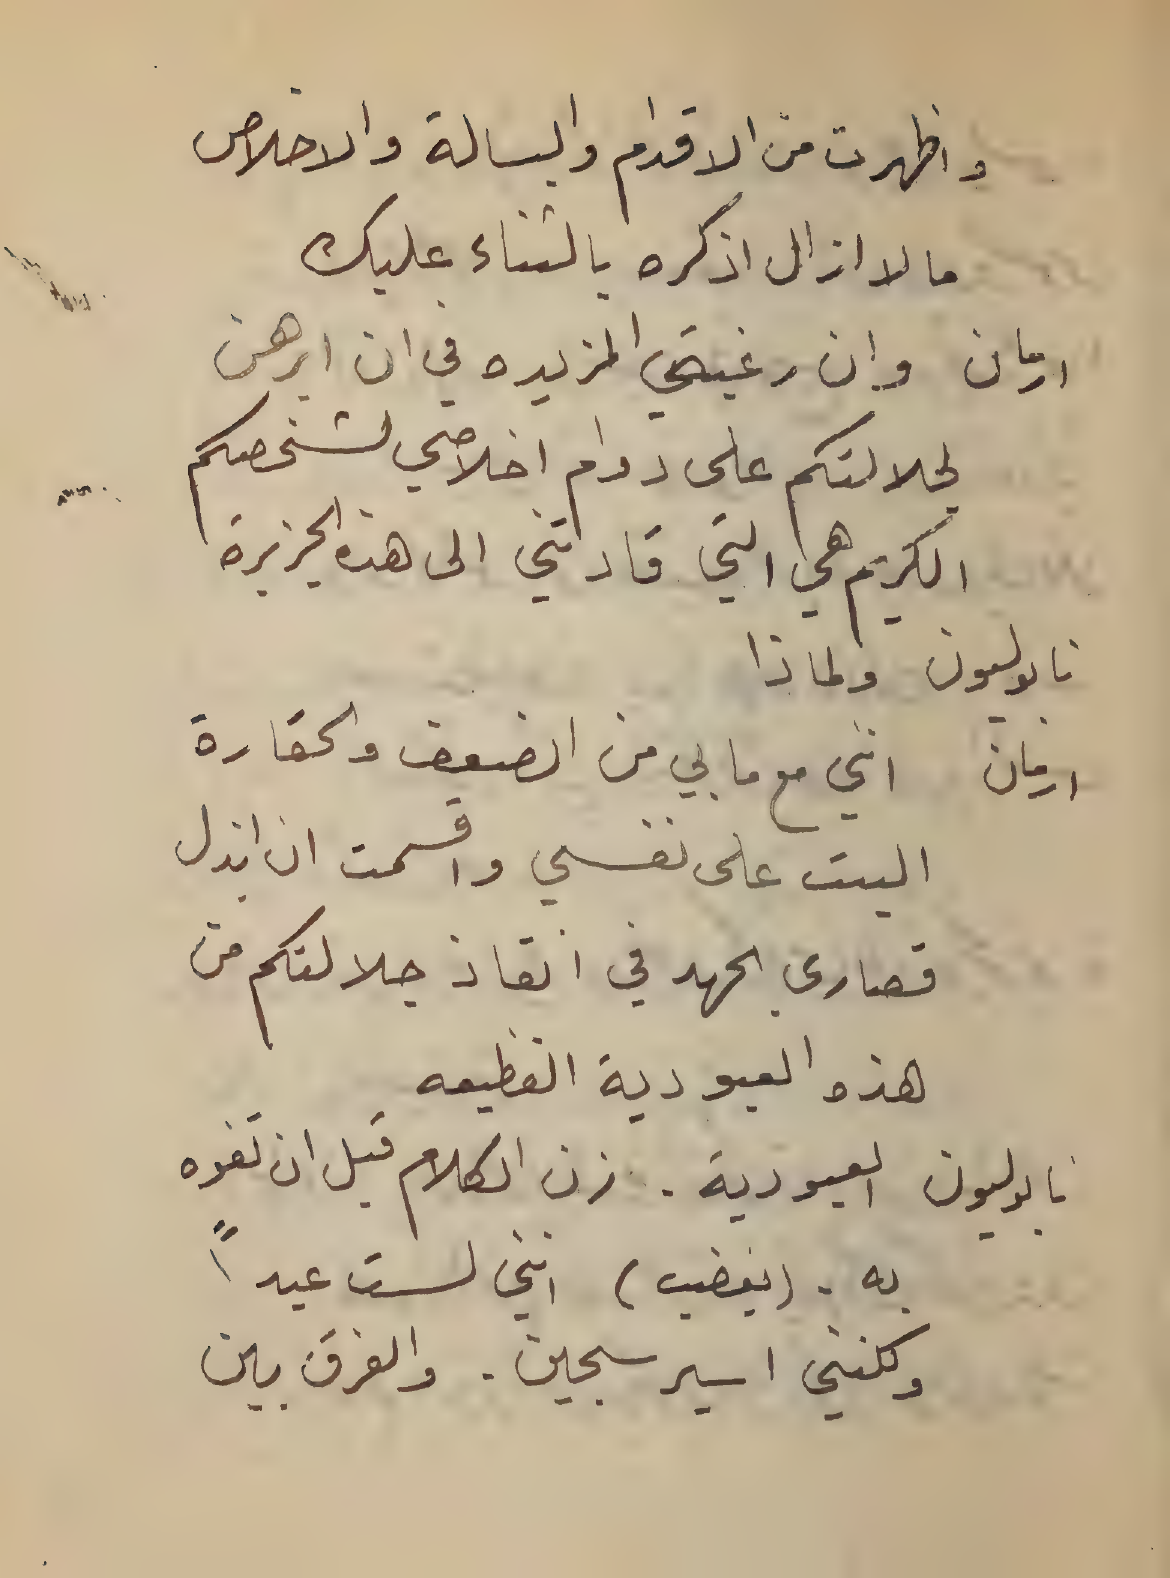 واظهرت من الاقدام والبسالة والاخلاص
ما لا ازال اذكره بالثناء عليك
ارمان وان رغبتي المزيده في ان ابرهن
لجلالتكم على دوام اخلاصي لشخصكم
الكريم هي التي قادتني الى هذه الجزيرة
نابوليون ولماذا
ارمان انني مع ما بي من الضعف والحقارة
اليت على نفسي واقسمت ان ابذل
قصارى الجهد في انقاذ جلالتكم من
هذه العبودية الفظيعه
نابوليون العبودية . زن الكلام قبل ان تفوه
به . (بغضب) انني لست عبداً
ولكنني اسير سجين . والفرق بين